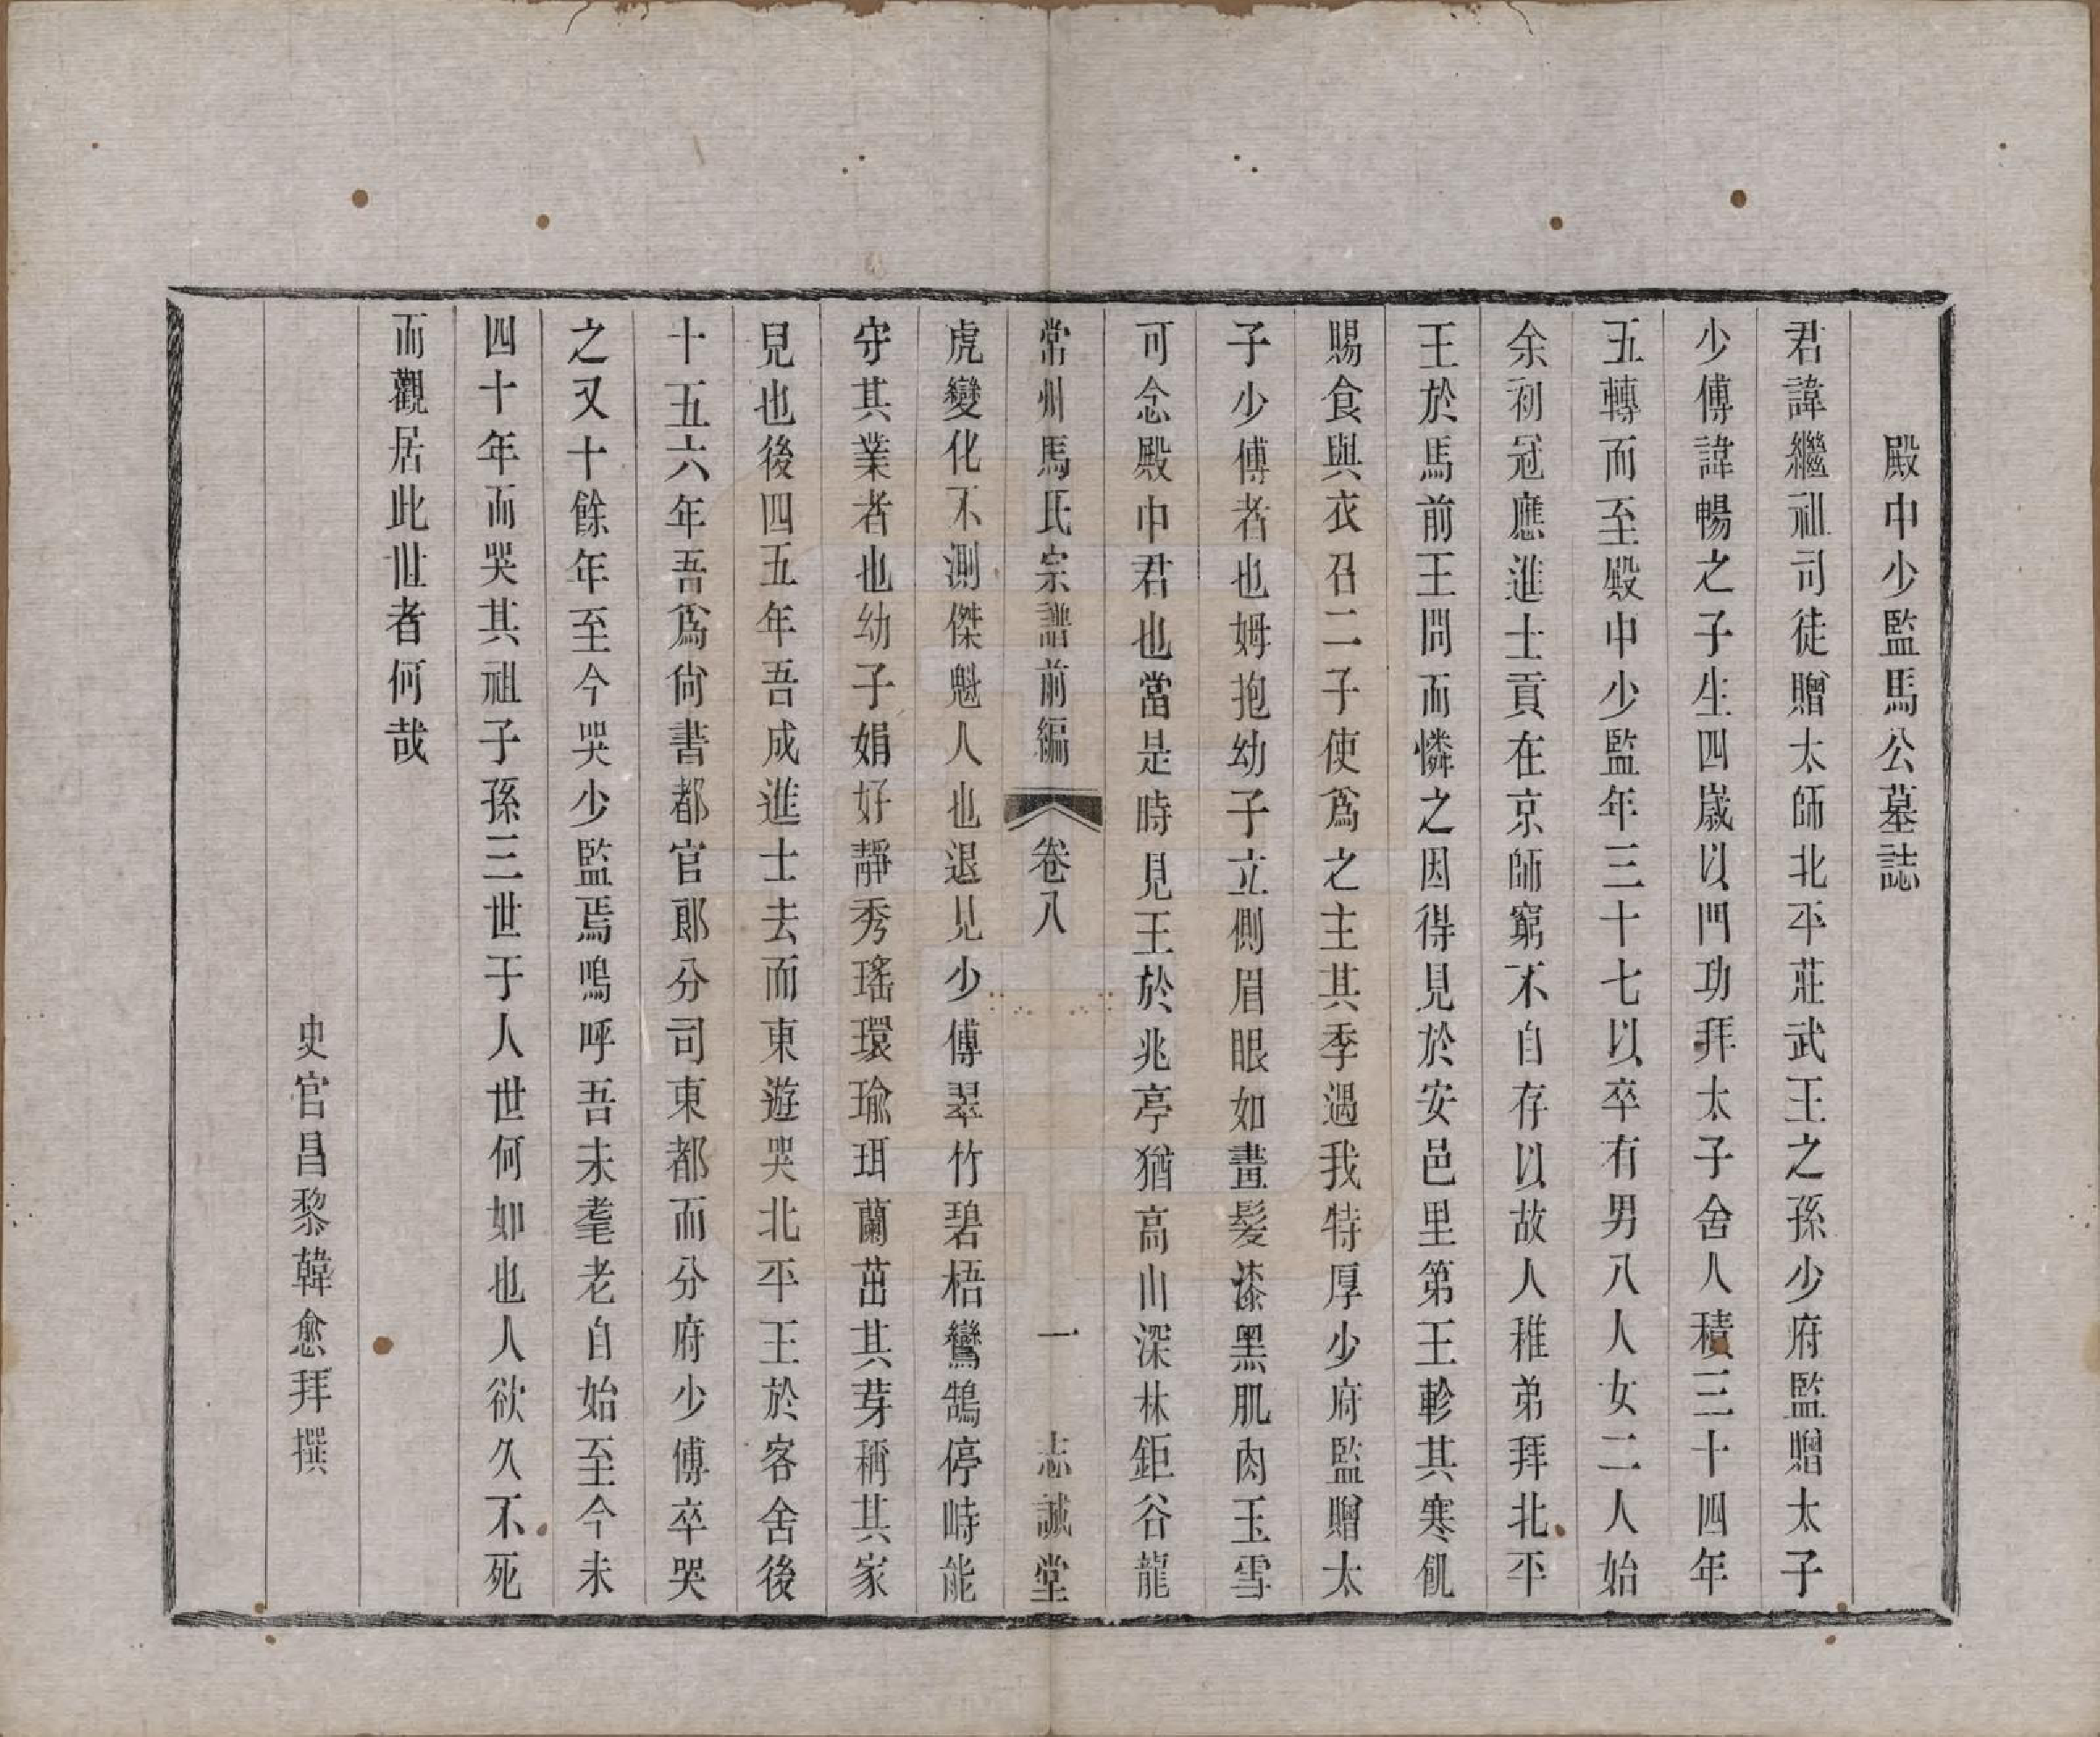 殿中少監馬公墓誌
君諱繼祖司徒贈太師北平莊武王之孫少府監贈太子
少傅諱暢之子生四歲以門功拜太子舍人積三十四年
五轉而至殿中少監年三十七以卒有男八人女二人始
余初冠應進士貢在京師窮不自存以故人稚弟拜北平
王於馬前王問而憐之因得見於安邑里第王軫其寒飢
賜食與衣召二子使爲之主其季遇我特厚少府監贈太
子少傅者也姆抱幼子立側眉眼如畫髮漆黑肌肉玉雪
可念殿中君也當是時見王於兆亭猶高山深林鉅谷龍
常州馬氏宗譜前編 卷八 一 志誠堂
虎變化不測傑魁人也退見少傅翠竹碧梧鸞鵠停峙能
守其業者也幼子娟好靜秀瑤環瑜珥蘭茁其芽稱其家
見也後四五年吾成進士去而東遊哭北平王於客舍後
十五六年吾爲尙書都官郎分司東都而分府少傅卒哭
之又十餘年至今哭少監焉嗚呼吾未耄老自始至今未
四十年而哭其祖子孫三世于人世何如也人欲久不死
而觀居此世者何哉
史官昌黎韓愈拜撰